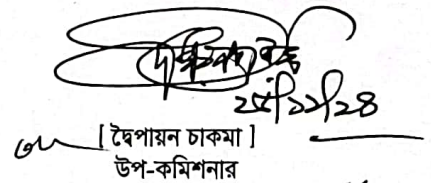 ২৫/১১/২৪
[ দ্বৈপায়ন চাকমা ]
উপ-কমিশনার